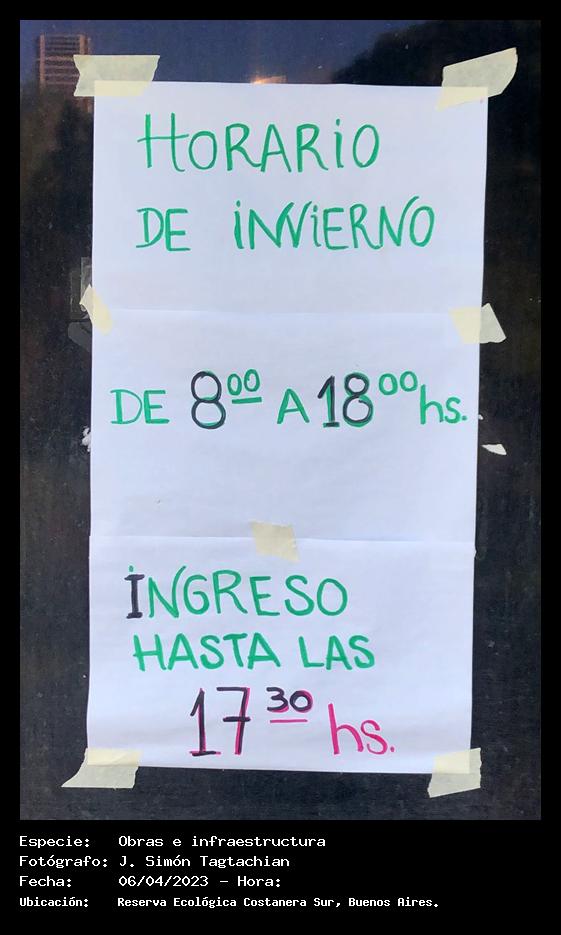 HORARIO
DE INVIERNO
DE 8⁰⁰ A 18⁰⁰hs.
INGRESO
HASTA LAS
17³⁰ hs.
Especie: Obras e infraestructura
Fotógrafo: J. Simón Tagtachian
Fecha: 06/04/2023 - Hora:
Ubicación: Reserva Ecológica Costanera Sur, Buenos Aires.